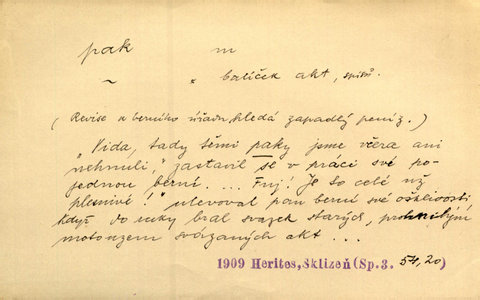 pak m
~ × balíček akt, spisů.
( Revise u berního úřadu, hledá zapadlý peníz. )
„Vida, tady těmi paky jsme včera ani
nehnuli," zastavil se v práci své po-
jednou berní. ... Fuj! Je to celé už
plesnivé!" ulevoval pan berní své ošklivosti
když do ruky bral svazek starých, prožluklým
motouzem svázaných akt ...
1909 Herites, Sklizeň (Sp.3. 54, 20)